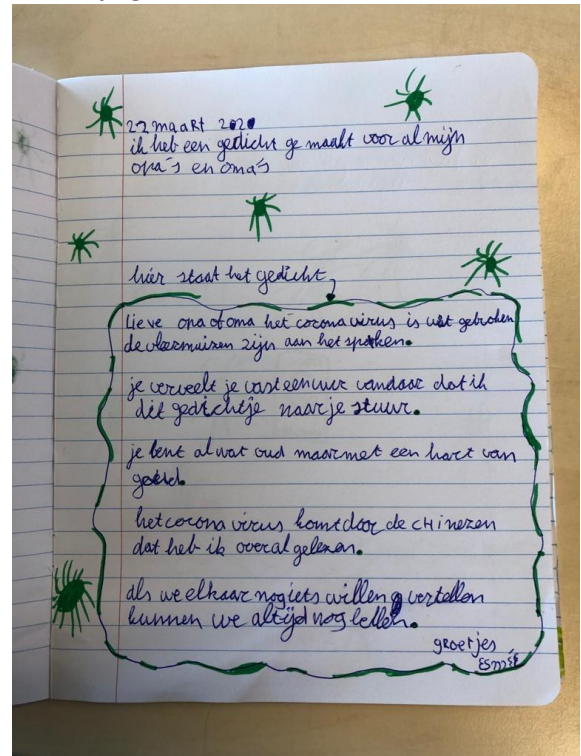 22 maart 2020
ik heb een gedicht ge maakt voor al mijn
opa's en oma's
hier staat het gedicht
Lieve opa of oma het corona virus is uit gebroken
de vleermuizen zijn aan het spoken.
je verveelt je vast een uur vandaar dat ik
dit gedichtje naar je stuur.
je bent al wat oud maar met een hart van
goud.
het corona virus komt door de CHinezen
dat heb ik overal gelezen.
als we elkaar nog iets willen vertellen
kunnen we altijd nog bellen.
groetjes
Esmée